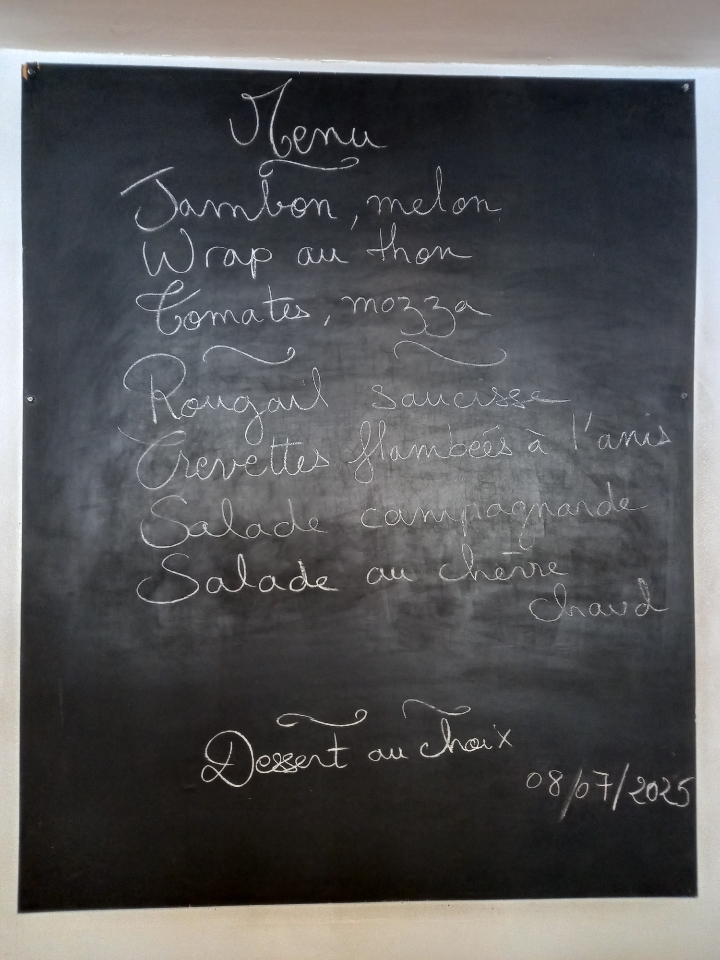 Menu
Jambon, melon
Wrap au thon
Tomates, mozza
Rougail saucisse
Crevettes flambées à l'anis
Salade campagnarde
Salade au chèvre
chaud
Dessert au choix
08/07/2025